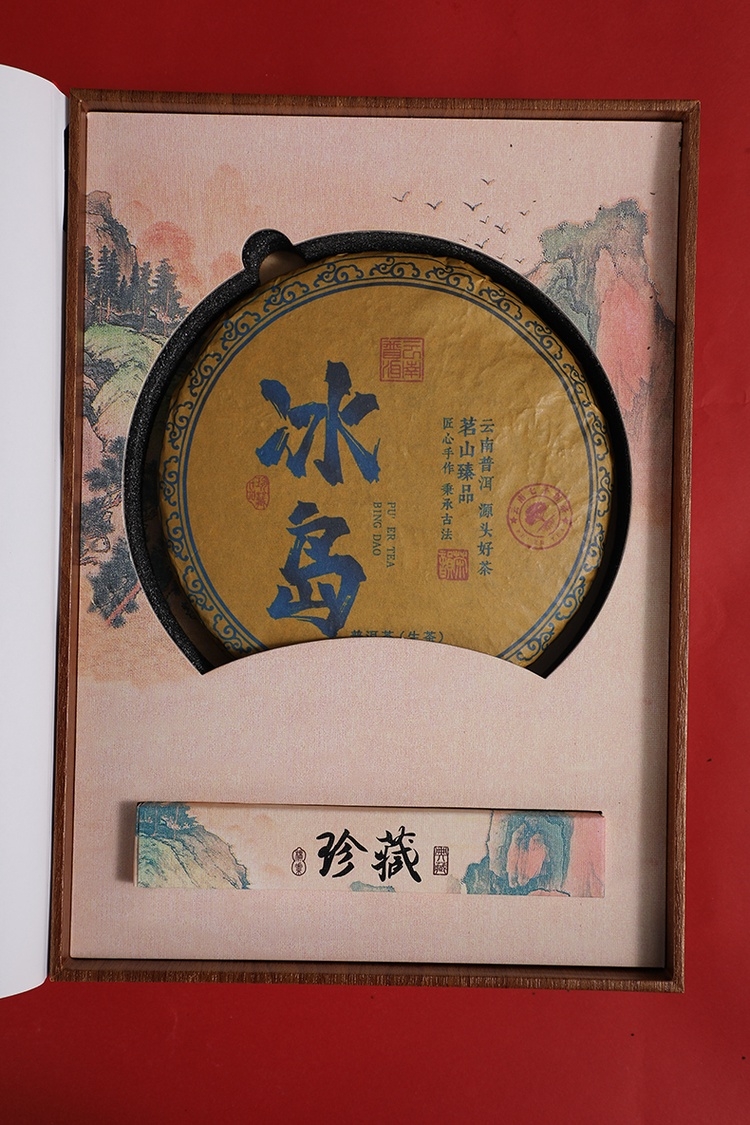 云南
普洱
冰岛
PU' ER TEA
BING DAO
云南普洱 源头好茶
茗山臻品
匠心手作 秉承古法
普洱茶(生茶)
珍藏
典藏